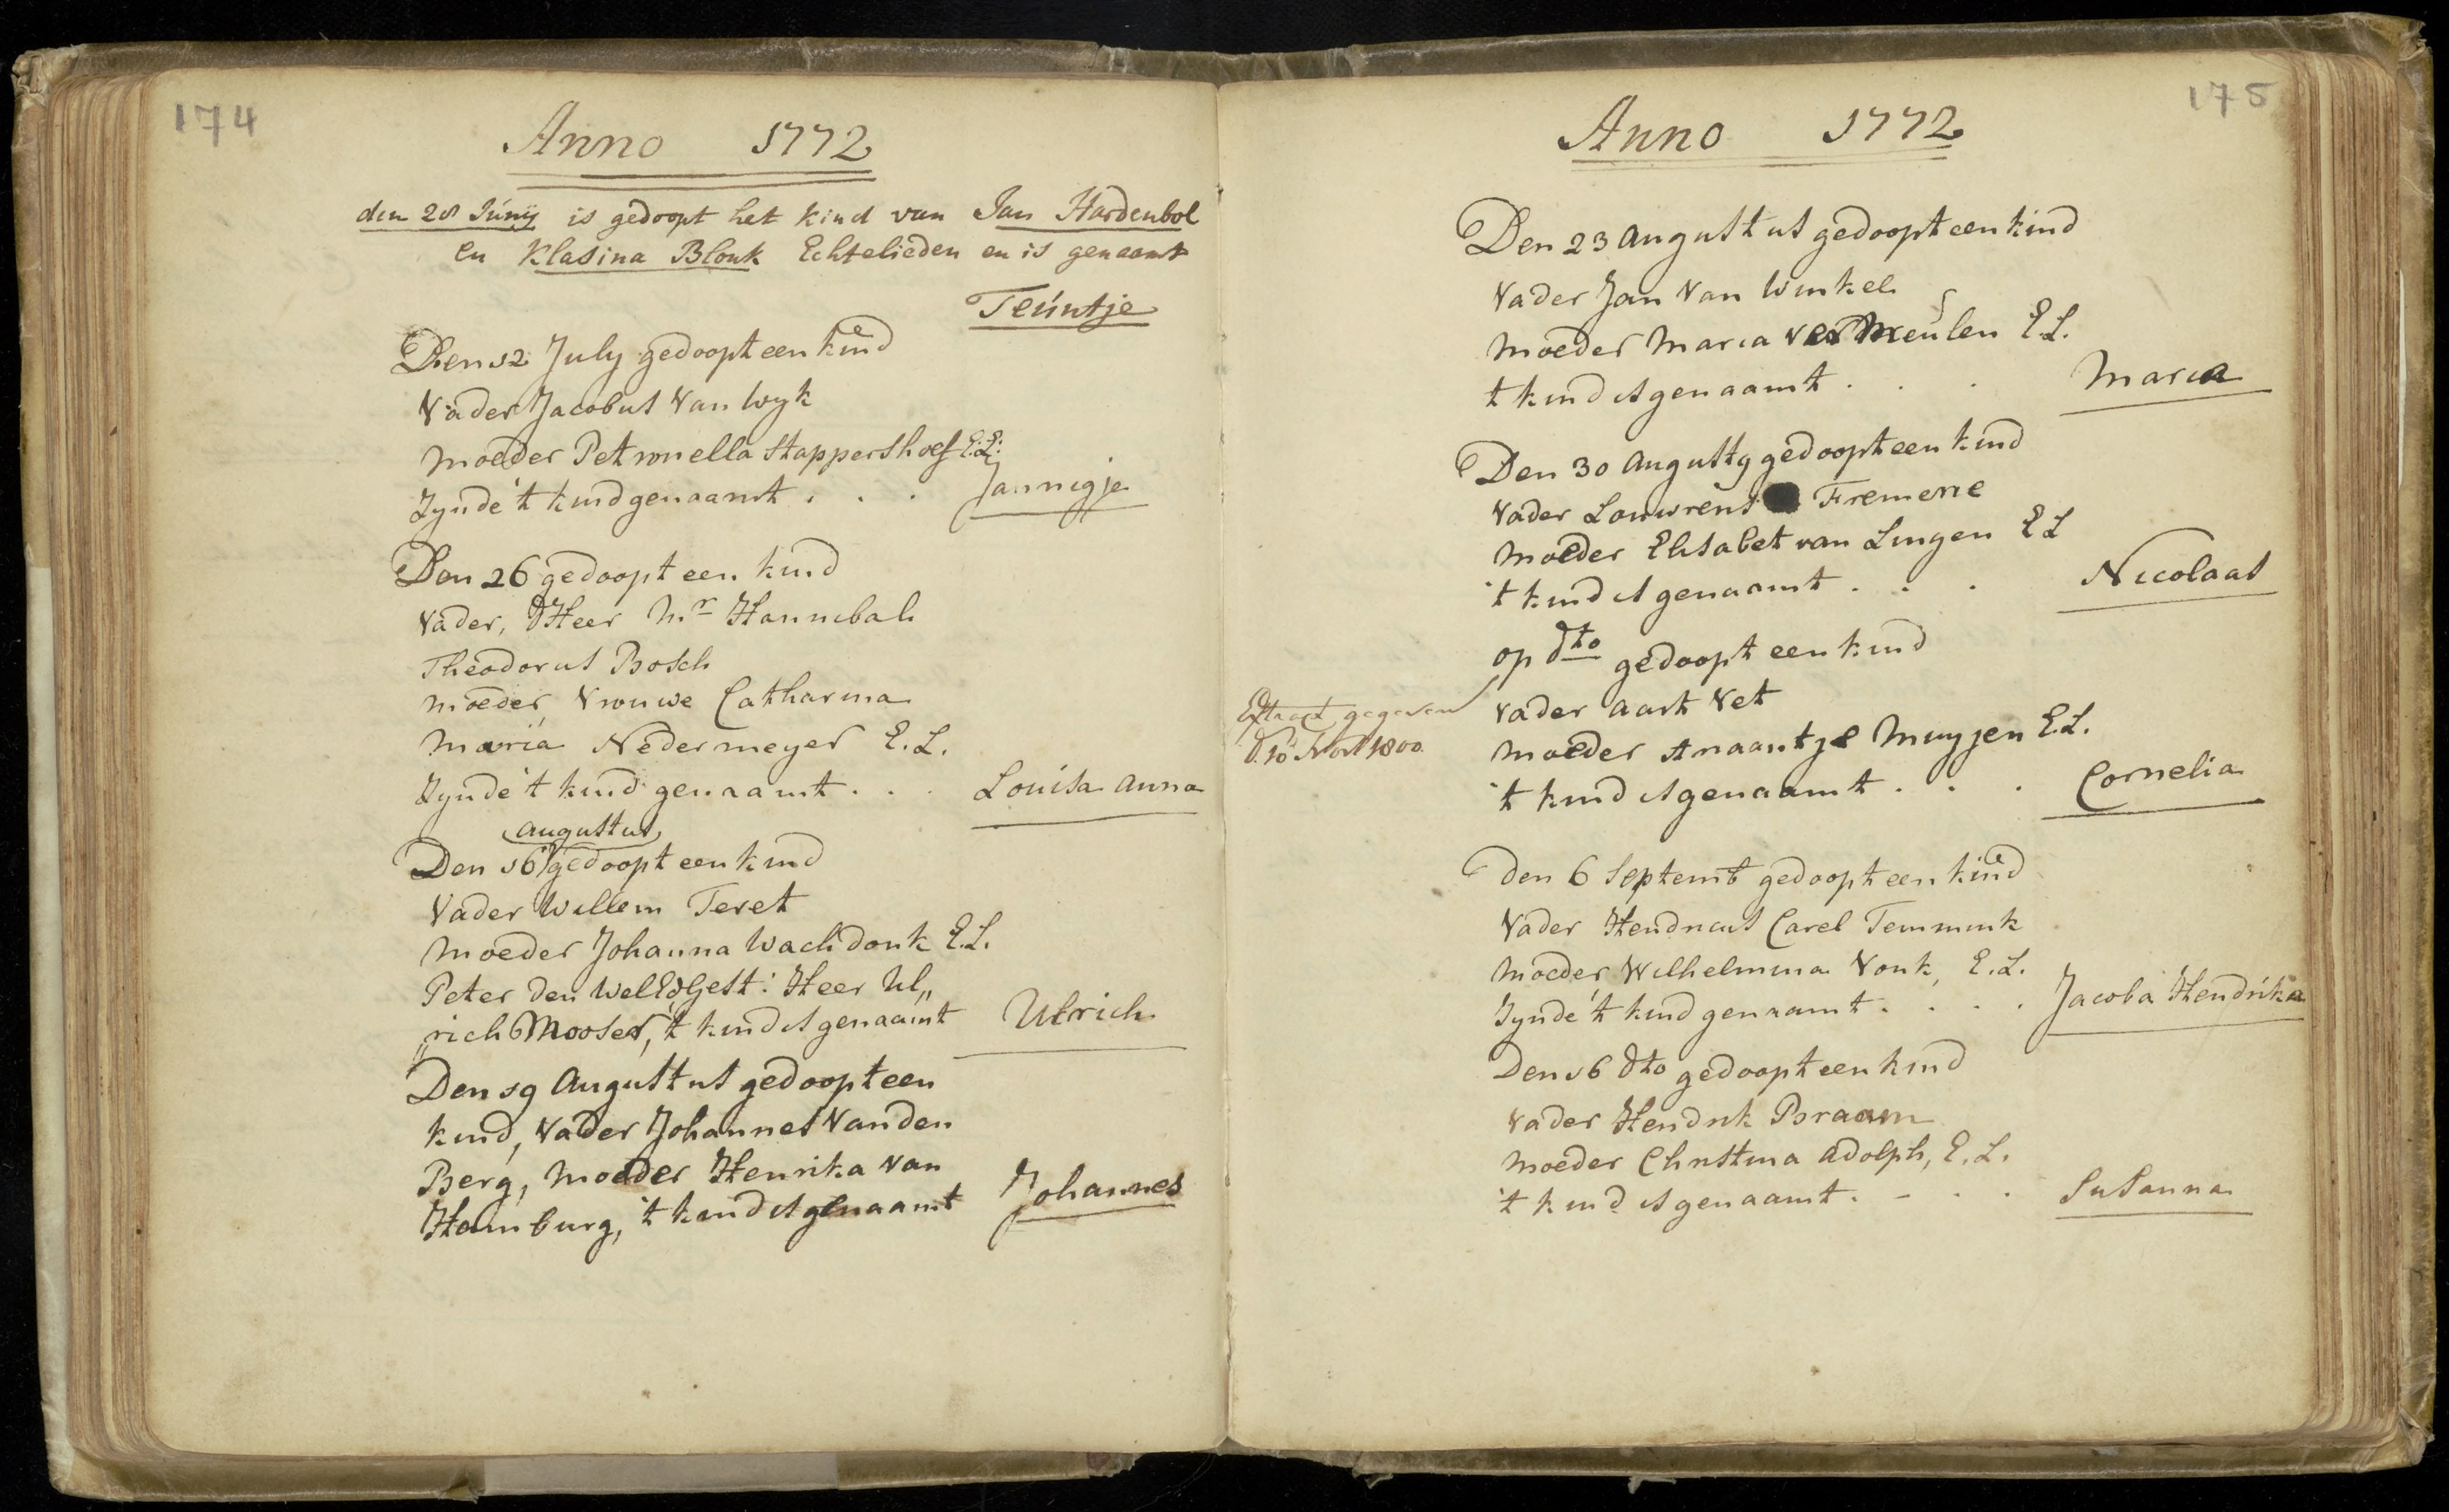 174
Anno 1772
den 28 Júnij is gedoopt het kind van Jan Hardenbol
en Klasina Blonk Echtelieden en is genaamt
Teúntje
Den 12 July gedoopt een kind
Vader Jacobus Van Wyk
Moeder Petronella Stappershoef E:L:
Zynde 't kind genaamt . . . Jannigje
Den 26 gedoopt een kind
Vader, d'Heer Mr Hannibal
Theodorus Bosch
Moeder Vrouwe Catharina
Maria Nedermeyer E.L.
Zynde 't kind genaamt . . . Louisa Anna
Augustus
Den 16 gedoopt een kind
Vader Willem Teret
Moeder Johanna Wachdonk E.L.
Peter den WelEdGest: Heer Ul„
„rich Mooser, 't kind is genaamt Ulrich
Den 19 Augustus gedoopt een
kind, Vader Johannes Van den
Berg, Moeder Henrika Van
Hamburg, 't kind is genaamt Johannes
175
Anno 1772
Den 23 Augustus gedoopt een kind
Vader Jan Van Winkel
Moeder Maria Vermeulen E.L.
t kind is genaamt . . . Maria
Den 30 Augusty gedoopt een kind
Vader Louwrens Fremerie
Moeder Elisabet van Lingen E L
't kind is genaamt . . . Nicolaas
op dto gedoopt een kind
Extract gegeven
d. 10 Novr 1800
Vader Aart Vet
Moeder Anaantje Muyjen E.L.
't kind is genaamt . . . Cornelia
Den 6 Septemb gedoopt een kind
Vader Hendricus Carel Temmink
Moeder Wilhelmina Vonk, E.L.
Zynde 't kind genaamt . . . . Jacoba Hendrika
Den 16 dto gedoopt een kind
Vader Hendrik Braam
Moeder Christina Adolph, E.L.
't kind is genaamt . - . . Susanna